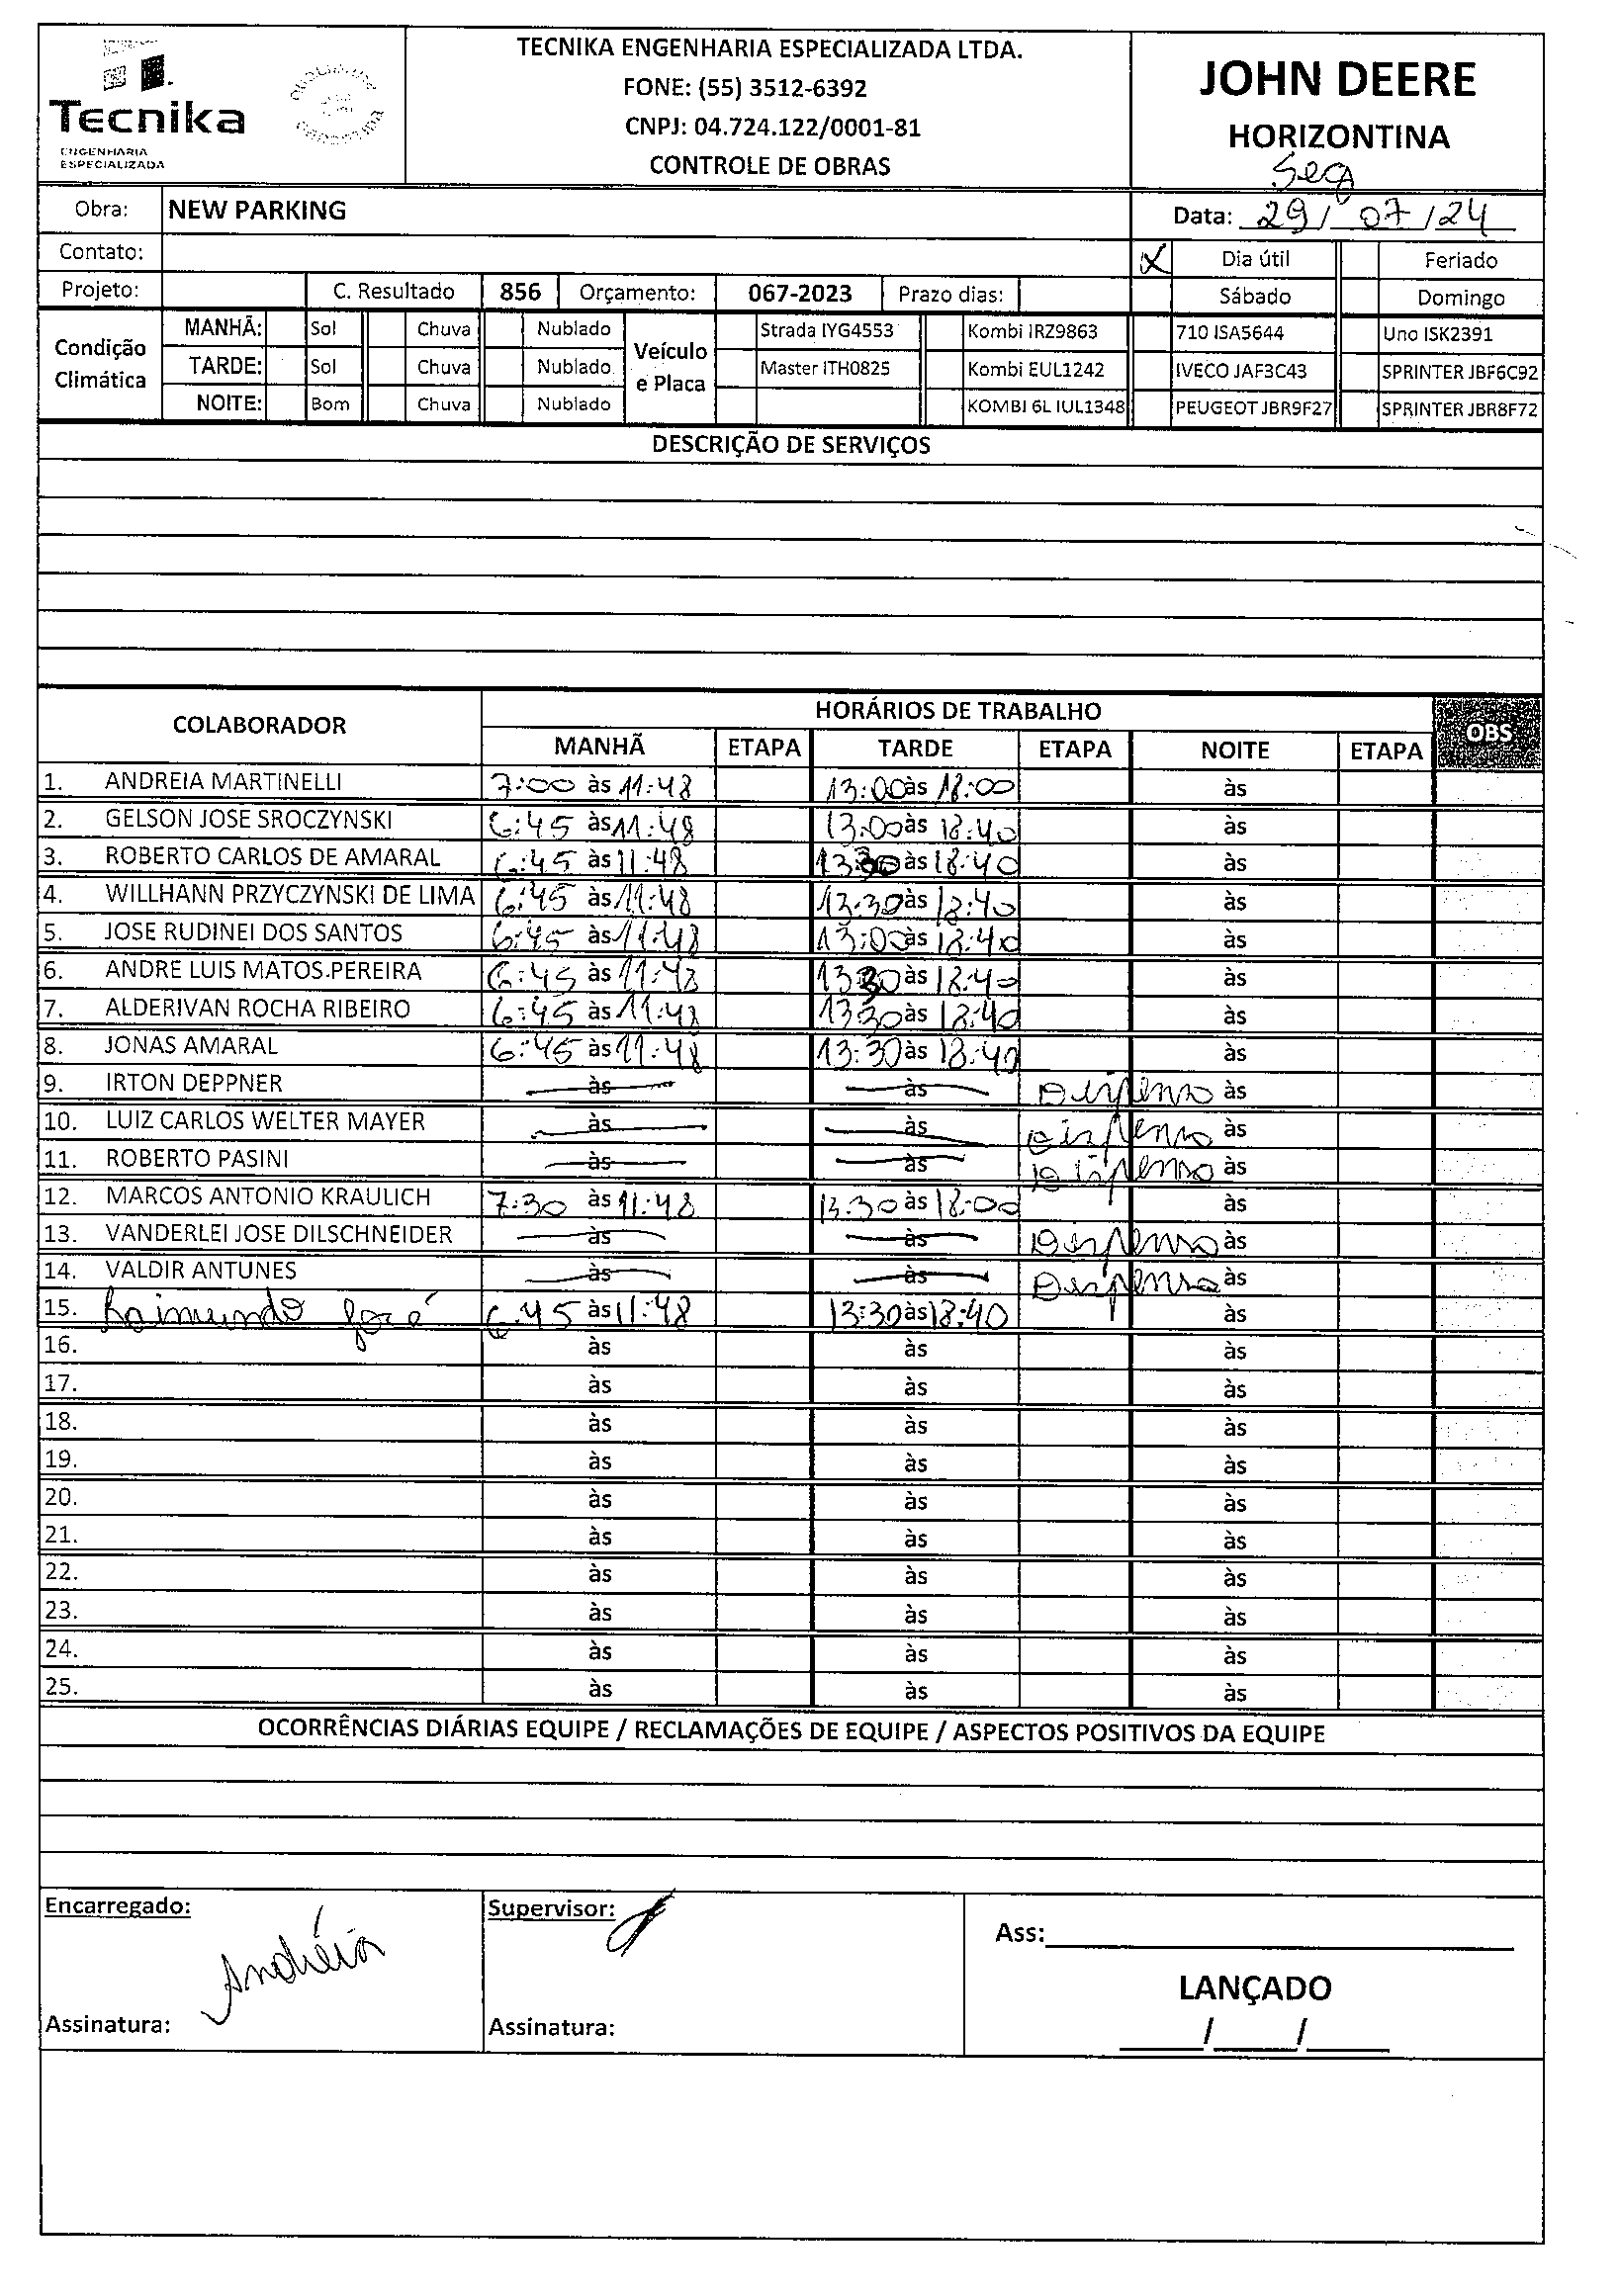 Tecnika
ENGENHARIA
ESPECIALIZADA
TECNIKA ENGENHARIA ESPECIALIZADA LTDA.
FONE: (55) 3512-6392
CNPJ: 04.724.122/0001-81
CONTROLE DE OBRAS
JOHN DEERE
HORIZONTINA
Seg
Obra: NEW PARKING
Data: 29/ 07 /24
Contato:
X Dia útil Feriado
Projeto: C. Resultado 856 Orçamento: 067-2023 Prazo dias: Sábado Domingo
Condição Climática
MANHÃ: Sol Chuva Nublado
TARDE: Sol Chuva Nublado
NOITE: Bom Chuva Nublado
Veículo e Placa
Strada IYG4553 Kombi IRZ9863 710 ISA5644 Uno ISK2391
Master ITH0825 Kombi EUL1242 IVECO JAF3C43 SPRINTER JBF6C92
KOMBI 6L IUL1348 PEUGEOT JBR9F27 SPRINTER JBR8F72
DESCRIÇÃO DE SERVIÇOS
COLABORADOR HORÁRIOS DE TRABALHO OBS
MANHÃ ETAPA TARDE ETAPA NOITE ETAPA
1. ANDREIA MARTINELLI 7:00 às 11:48 13:00 às 18:00 às
2. GELSON JOSE SROCZYNSKI 6:45 às 11:48 13:00 às 18:40 às
3. ROBERTO CARLOS DE AMARAL 6:45 às 11:48 13:30 às 18:40 às
4. WILLHANN PRZYCZYNSKI DE LIMA 6:45 às 11:48 13:30 às 18:40 às
5. JOSE RUDINEI DOS SANTOS 6:45 às 11:48 13:00 às 18:40 às
6. ANDRE LUIS MATOS PEREIRA 6:45 às 11:48 13:30 às 18:40 às
7. ALDERIVAN ROCHA RIBEIRO 6:45 às 11:48 13:30 às 18:40 às
8. JONAS AMARAL 6:45 às 11:48 13:30 às 18:40 às
9. IRTON DEPPNER às às Dispenso às
10. LUIZ CARLOS WELTER MAYER às às Dispenso às
11. ROBERTO PASINI às às Dispenso às
12. MARCOS ANTONIO KRAULICH 7:30 às 11:48 13:30 às 18:00 às
13. VANDERLEI JOSE DILSCHNEIDER às às Dispenso às
14. VALDIR ANTUNES às às Dispenso às
15. Raimundo José 6:45 às 11:48 13:30 às 18:40 às
16. às às às
17. às às às
18. às às às
19. às às às
20. às às às
21. às às às
22. às às às
23. às às às
24. às às às
25. às às às
OCORRÊNCIAS DIÁRIAS EQUIPE / RECLAMAÇÕES DE EQUIPE / ASPECTOS POSITIVOS DA EQUIPE
Encarregado: Supervisor:
Ass:
Andréia
LANÇADO
Assinatura: Assinatura:
/ /